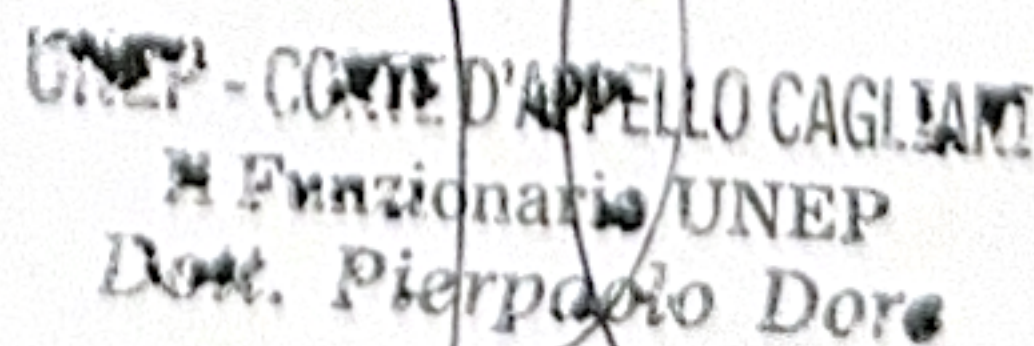 UNEP - CORTE D'APPELLO CAGLIARI
Il Funzionario UNEP
Dott. Pierpaolo Dore